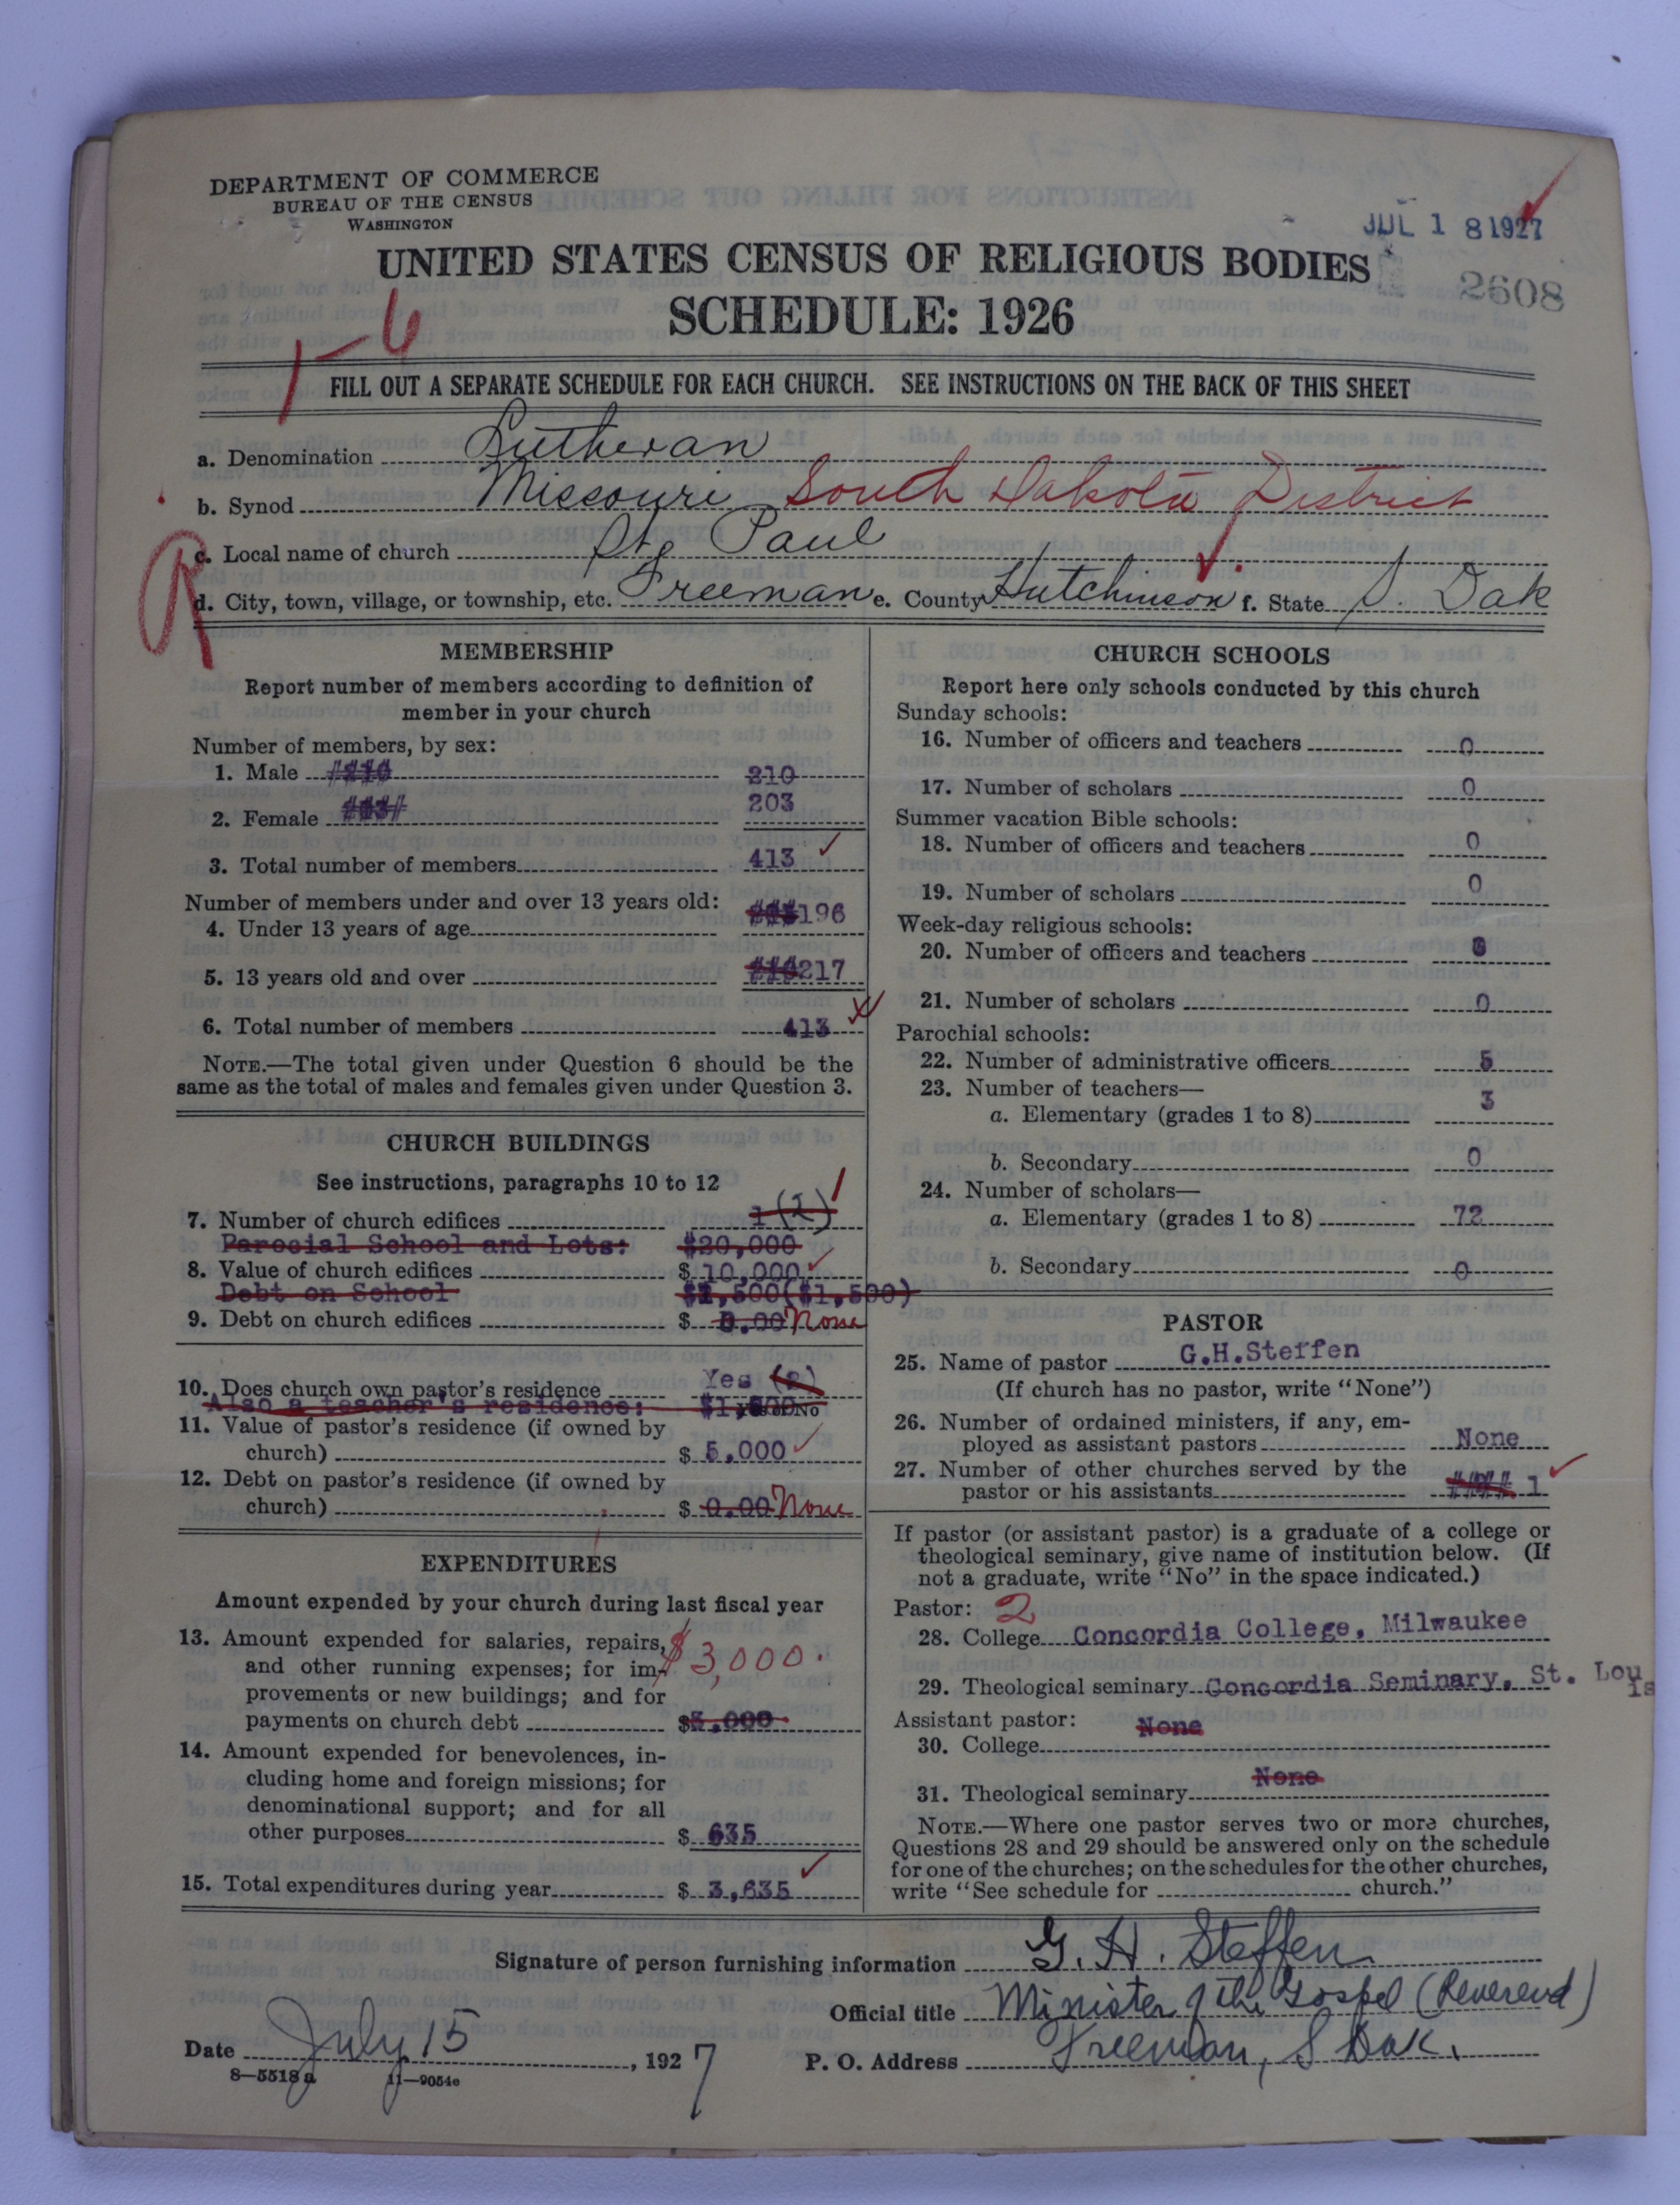 DEPARTMENT OF COMMERCE
BUREAU OF THE CENSUS
WASHINGTON
JUL 18 1927
2608
UNITED STATES CENSUS OF RELIGIOUS BODIES
SCHEDULE: 1926
1-6
FILL OUT A SEPARATE SCHEDULE FOR EACH CHURCH. SEE INSTRUCTIONS ON THE BACK OF THIS SHEET
a. Denomination Lutheran
b. Synod Missouri South Dakota District
c. Local name of church St. Paul
d. City, town, village, or township, etc. Freeman e. County Hutchinson f. State S. Dak
MEMBERSHIP
Report number of members according to definition of
member in your church
Number of members, by sex:
1. Male 210
2. Female 203
3. Total number of members 413
Number of members under and over 13 years old:
4. Under 13 years of age 196
5. 13 years old and over 217
6. Total number of members 413
NOTE.—The total given under Question 6 should be the
same as the total of males and females given under Question 3.
CHURCH BUILDINGS
See instructions, paragraphs 10 to 12
7. Number of church edifices 1 (1) 1
Parocial School and Lots: $20,000
8. Value of church edifices $ 10,000
Debt on School ($1,500)
9. Debt on church edifices $ 0.00 None
10. Does church own pastor's residence Yes (2)
Yes or No
Also a teacher's residence:
11. Value of pastor's residence (if owned by
church) $ 5,000
12. Debt on pastor's residence (if owned by
church) $ 0.00 None
EXPENDITURES
Amount expended by your church during last fiscal year
13. Amount expended for salaries, repairs,
and other running expenses; for im-
provements or new buildings; and for
payments on church debt $ 3,000
$3,000.
14. Amount expended for benevolences, in-
cluding home and foreign missions; for
denominational support; and for all
other purposes $ 635
15. Total expenditures during year $ 3,635
CHURCH SCHOOLS
Report here only schools conducted by this church
Sunday schools:
16. Number of officers and teachers 0
17. Number of scholars 0
Summer vacation Bible schools:
18. Number of officers and teachers 0
19. Number of scholars 0
Week-day religious schools:
20. Number of officers and teachers 0
21. Number of scholars 0
Parochial schools:
22. Number of administrative officers 5
23. Number of teachers—
a. Elementary (grades 1 to 8) 3
b. Secondary 0
24. Number of scholars—
a. Elementary (grades 1 to 8) 72
b. Secondary 0
PASTOR
25. Name of pastor G.H.Steffen
(If church has no pastor, write "None")
26. Number of ordained ministers, if any, em-
ployed as assistant pastors None
27. Number of other churches served by the
pastor or his assistants 1
If pastor (or assistant pastor) is a graduate of a college or
theological seminary, give name of institution below. (If
not a graduate, write "No" in the space indicated.)
Pastor: 2
28. College Concordia College, Milwaukee
29. Theological seminary Concordia Seminary, St. Louis
Assistant pastor:
30. College None
31. Theological seminary None
NOTE.—Where one pastor serves two or more churches,
Questions 28 and 29 should be answered only on the schedule
for one of the churches; on the schedules for the other churches,
write "See schedule for church."
Signature of person furnishing information G. H. Steffen
Official title Minister of the Gospel (Reverend)
Date July 15, 1927
P. O. Address Freeman, S Dak.
8—5518 a 11—9054c